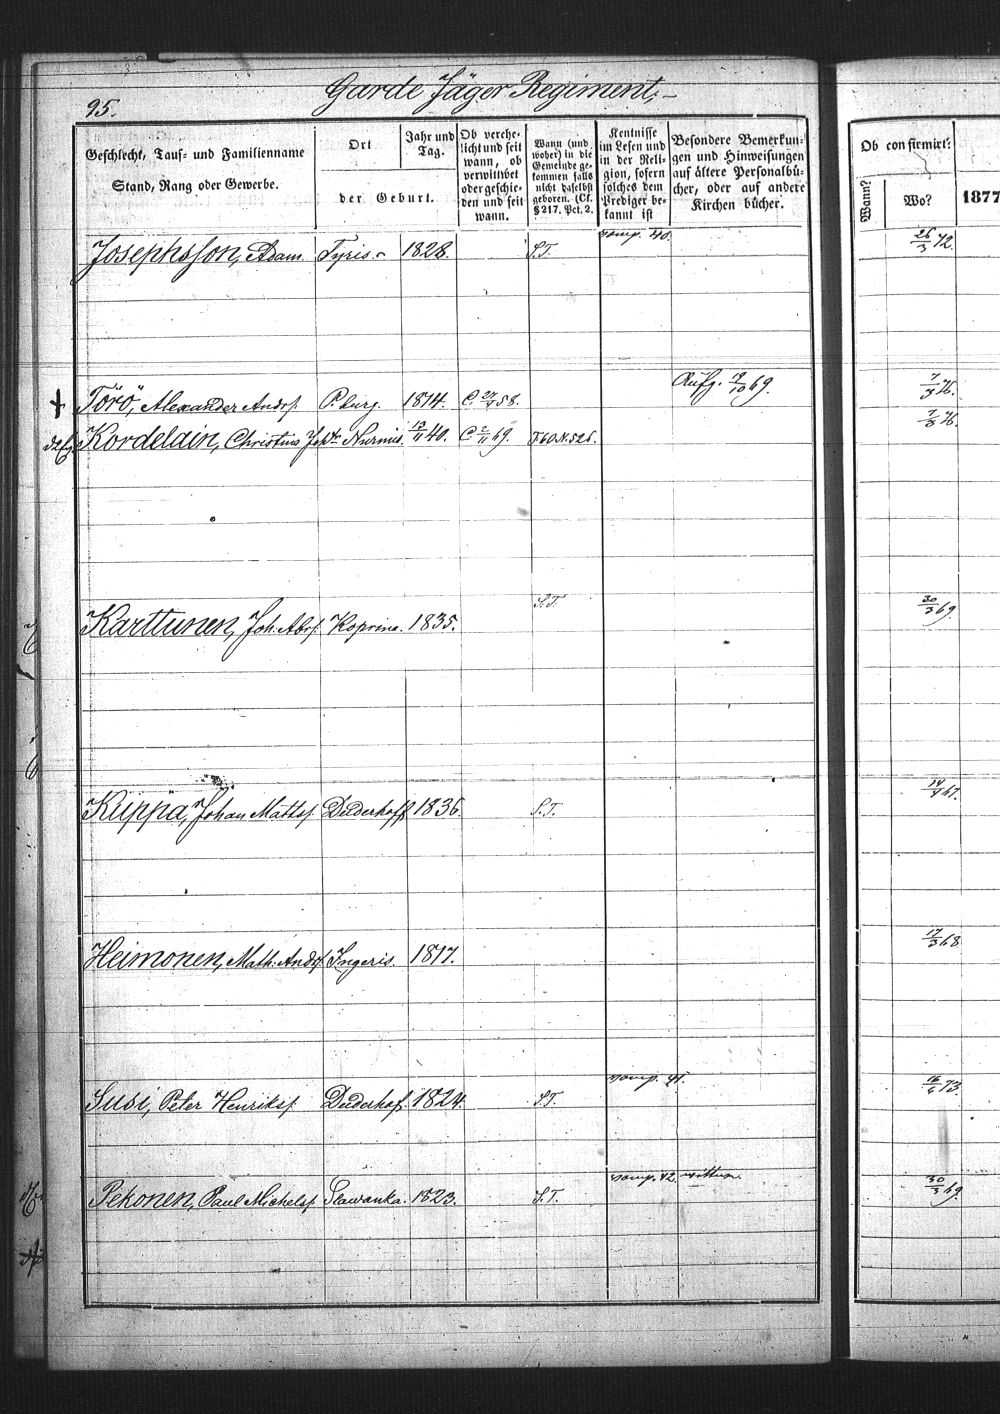 95.
Garde Jäger Regiment,
Geschlecht, Tauf- und Familienname
Stand, Rang oder Gewerbe.
Ort
der Geburt.
Jahr und
Tag.
Ob verehe-
licht und seit
wann, ob
verwittibet
oder geschie-
den und seit
wann.
Wann (und
woher) in die
Gemeinde ge-
kommen falls
nicht daselbst
geboren. (Cf.
§ 217. Pct. 2.
Kentnisse
im Lesen und
in der Reli-
gion, sofern
solches dem
Prediger be-
kannt ist
Besondere Bemerkun-
gen und Hinweisungen
auf ältere Personalbü-
cher, oder auf andere
Kirchen bücher.
Ob confirmirt?
Wann?
Wo?
1877
Josephsson, Adam. Tyris. 1828. S.T. 40. 26/3 72.
Törö, Alexander Andrs. P.burg. 1814. 58. Aufg. 19/10 69. 7/3 76.
Kordeldin, Christins Nurmis. 13/11 40. C 2/11 69. F60.N.526. 7/3 76.
Karttunen, Joh. Abrs. Koprina. 1835. S.T. 30/3 69.
Kuppa, Johan Matts. Duderhoff 1836. S.T. 14/4 67.
Heimonen, Math. Andrs. Ingeris. 1817. 17/3 68
Susi, Peter Henriks. Duderhof. 1824. S.T. 41. 16/4 73.
Pekonen, Paul Michels. Slawanka. 1823. S.T. 42. 30/3 69.